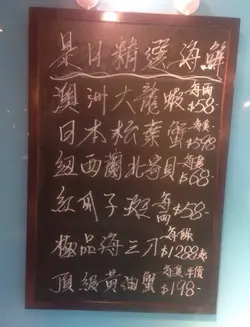 是日精選海鮮
澳洲大龍蝦 每兩 $58-
日本松葉蟹 每隻 $598
紐西蘭北寄貝 每隻 $68-
紅瓜子斑 每兩 $58-
極品海三刀 每條 $1288起
頂級黃油蟹 每隻半價 $198-